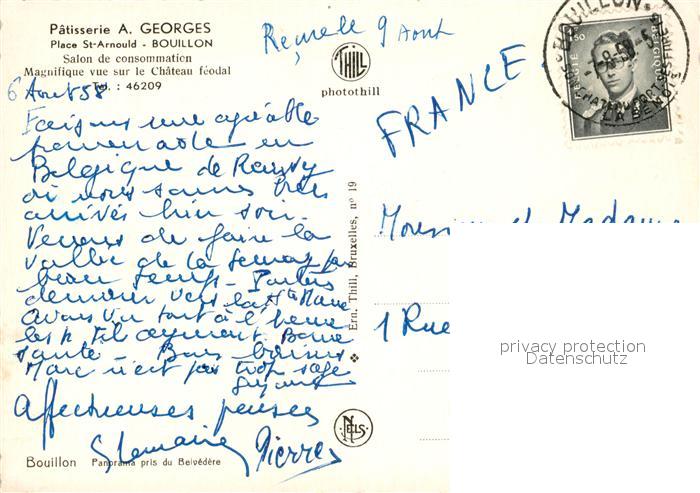 Pâtisserie A. GEORGES
Place St-Arnould - BOUILLON
Salon de consommation
Magnifique vue sur le Château féodal
Tél. : 46209
THILL
photothill
Reçu le 9 Août
6 Août 58
Faisons une agréable
promenade en
Belgique de
où nous sommes
arrivés hier soir.
Venons de faire la
vallée de la Semoy par
beau temps - Partons
demain vers la
Avons vu tout à l'heure
les
santé - Bons baisers
Marc n'est pas trop sage
Affectueuses pensées
Pierre
FRANCE
Monsieur et Madame
1 Rue
Ern. Thill, Bruxelles, nº 19
NELS
Bouillon Panorama pris du Belvédère
BOUILLON
BELGIQUE
privacy protection
Datenschutz